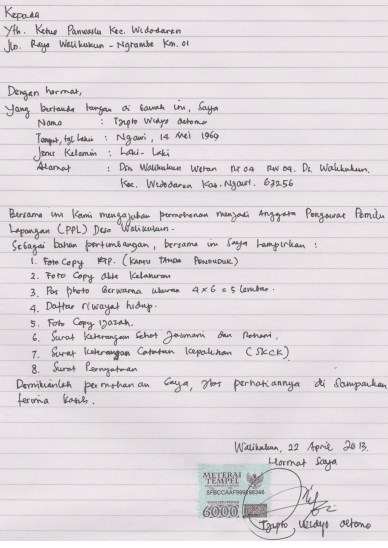 Kepada
Yth. Ketua Panwaslu Kec. Widodaren
Jln. Raya Walikukun - Ngrambe Km. 01
Dengan hormat,
Yang bertanda tangan di bawah ini, Saya
Nama : Tjipto Widyo oetomo
Tempat, tgl Lahir : Ngawi, 14 Mei 1969
Jenis Kelamin : Laki-Laki
Alamat : Dsn Walikukun Wetan RT 04 RW 04. Ds. Walikukun.
Kec. Widodaren Kab. Ngawi. 63256
Bersama ini Kami mengajukan permohonan menjadi Anggota Pengawas Pemilu
Lapangan (PPL) Desa Walikukun.
Sebagai bahan pertimbangan, bersama ini Saya lampirkan :
1. Foto Copy KTP. (KARTU TANDA PENDUDUK)
2. Foto Copy akte Kelahiran
3. Pas photo Berwarna ukuran 4 x 6 = 5 lembar.
4. Daftar riwayat hidup.
5. Foto Copy ijazah.
6. Surat Keterangan Sehat Jasmani dan Rohani.
7. Surat Keterangan Catatan Kepolisian (SKCK)
8. Surat Pernyataan
Demikianlah permohonan Saya, atas perhatiannya di Sampaikan
terima kasih.
Walikukun, 22 April 2013.
Hormat Saya
METERAI
TEMPEL
6000
Tjipto Widyo oetomo